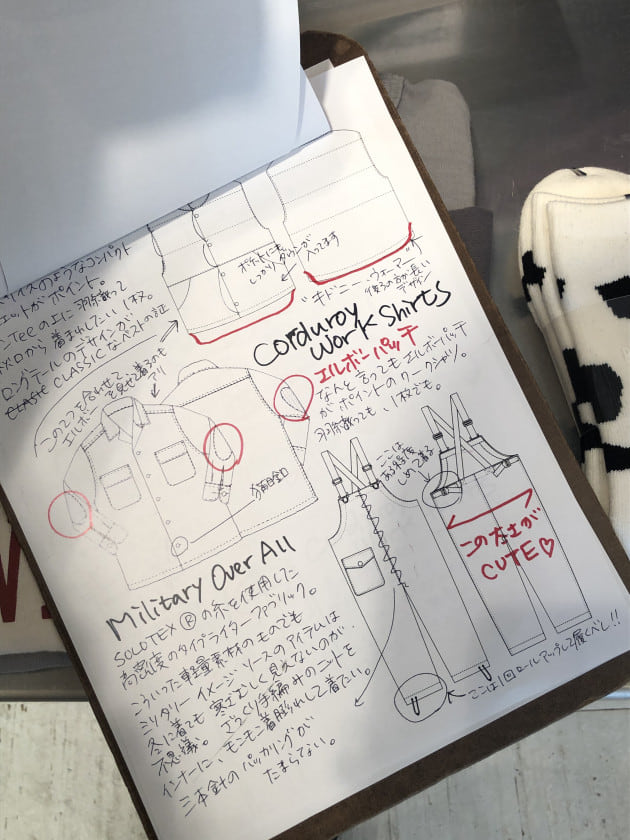 バイスのようなコンパクト
エットがポイント。
ンTeeの上に羽織って
から着まれしたい1枚。
ロングテールのデザインが
CLASSIC なベストの証
ポケットにも
しっかりダウンが
入ってます
"キドニーウォーマー"
後ろの方が長い
デザイン
Corduroy
Work Shirts
エルボーパッチ
なんと言ってもエルボーパッチ
がポイントのワークシャツ。
羽織っても1枚でも。
この2つを合わせて、
エルボーを見せて着るのも
アリ
猫目釦
ここは
ある程度
しめて着る
この太さが
CUTE♡
Military Over All
SOLOTEX®の糸を使用した
高密度のタイプライターファブリック。
こういった軽量素材のものでも
ミリタリーイメージソースのアイテムは
冬に着ても寒さむしく見えないのが、
不思議。ざっくり手編みのニットを
インナーに、モンモン着膨れして着たい。
三本針のパッカリングが
たまらない。
ここは1回ロールアップして履くべし!!